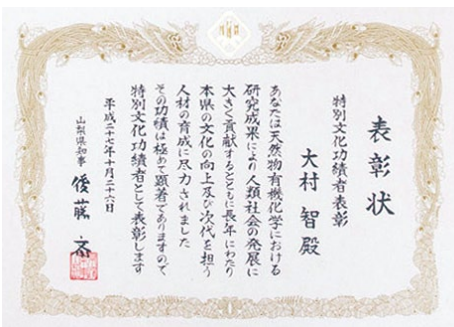 表彰状
特別文化功績者表彰
大村 智 殿
あなたは天然物有機化学における
研究成果により人類社会の発展に
大きく貢献するとともに長年にわたり
本県の文化の向上及び次代を担う
人材の育成に尽力されました
その功績は極めて顕著でありますので
特別文化功績者として表彰します
平成二十七年十月二十六日
山梨県知事 後藤 斎